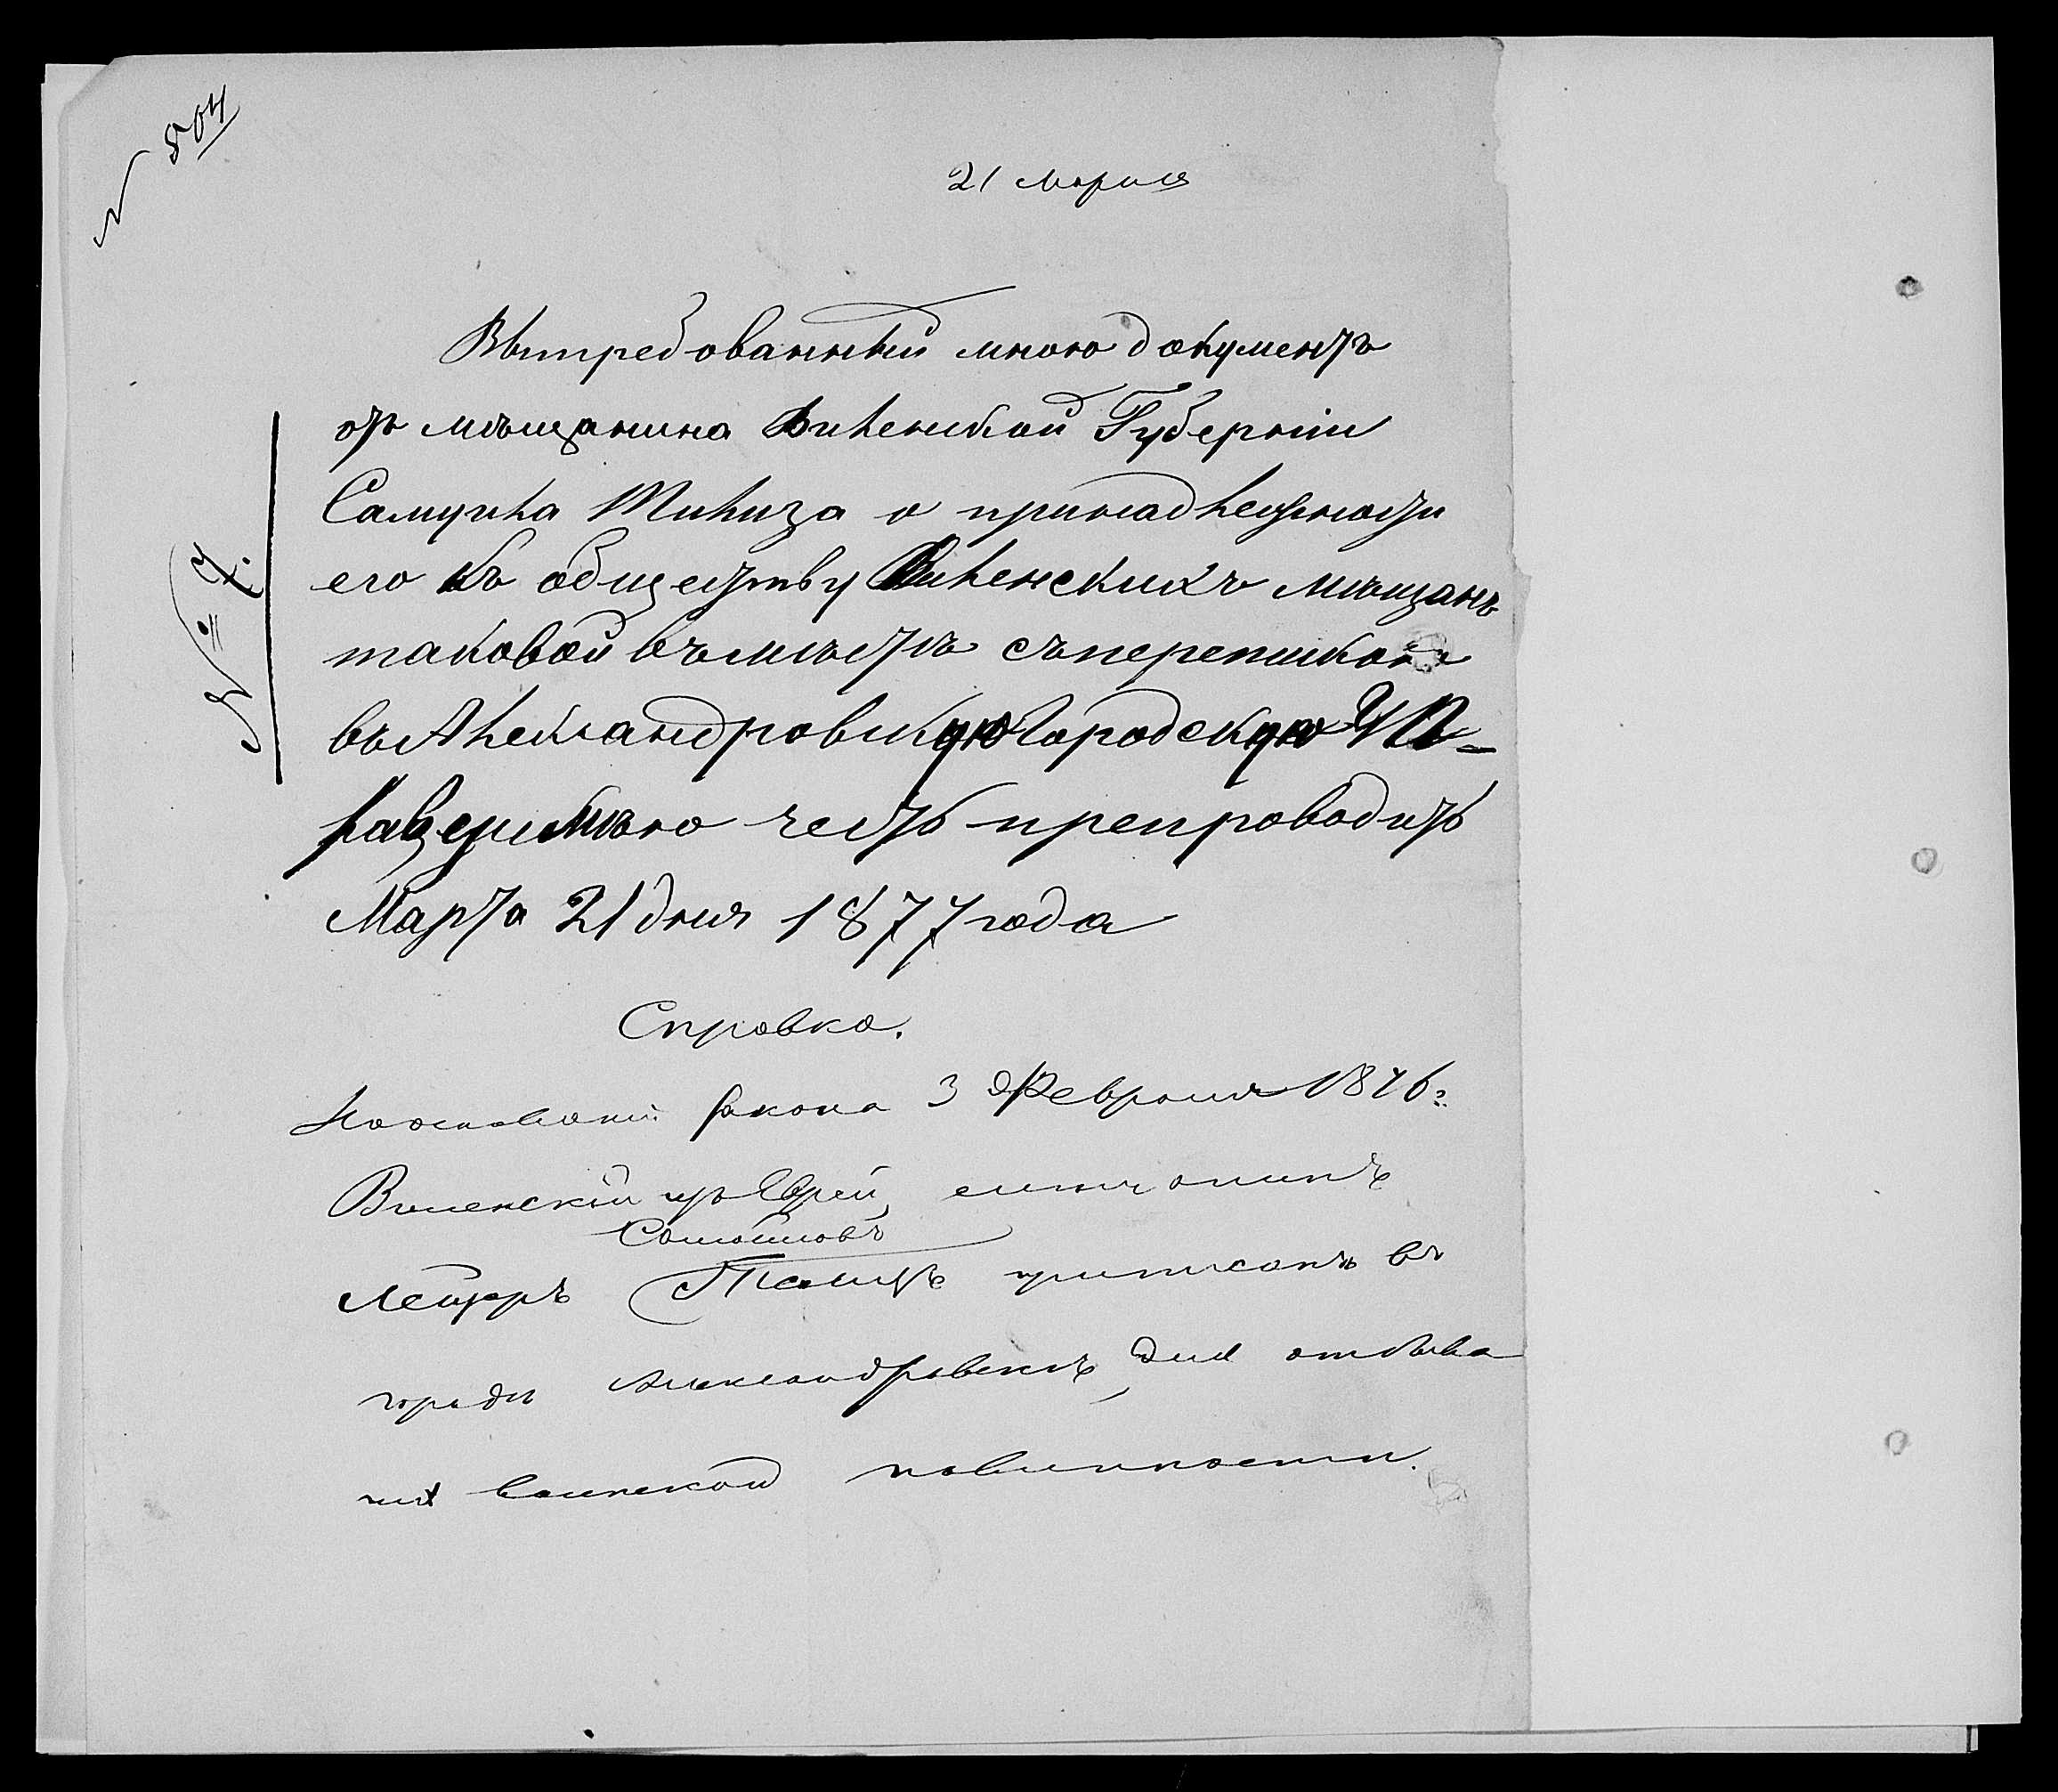 № 504
21 марта
Вытребованный мною документъ
отъ мѣщанина Виленской Губерніи
Самуила Тилиза о принадлежности
его къ обществу Виленскихъ мѣщанъ
таковой вместѣ съ перепискою
№ 7.
въ Александровскую Городскую Уп-
раву имѣю честь препроводить
Марта 21 дня 1877 года
Справка.
На основаніи закона 3 Февраля 1876 г.
Виленскій Еврей, мѣщанинъ
Самуиловъ
приписанъ въ
городъ Александровскъ, для отбыва
нія воинской повинности.